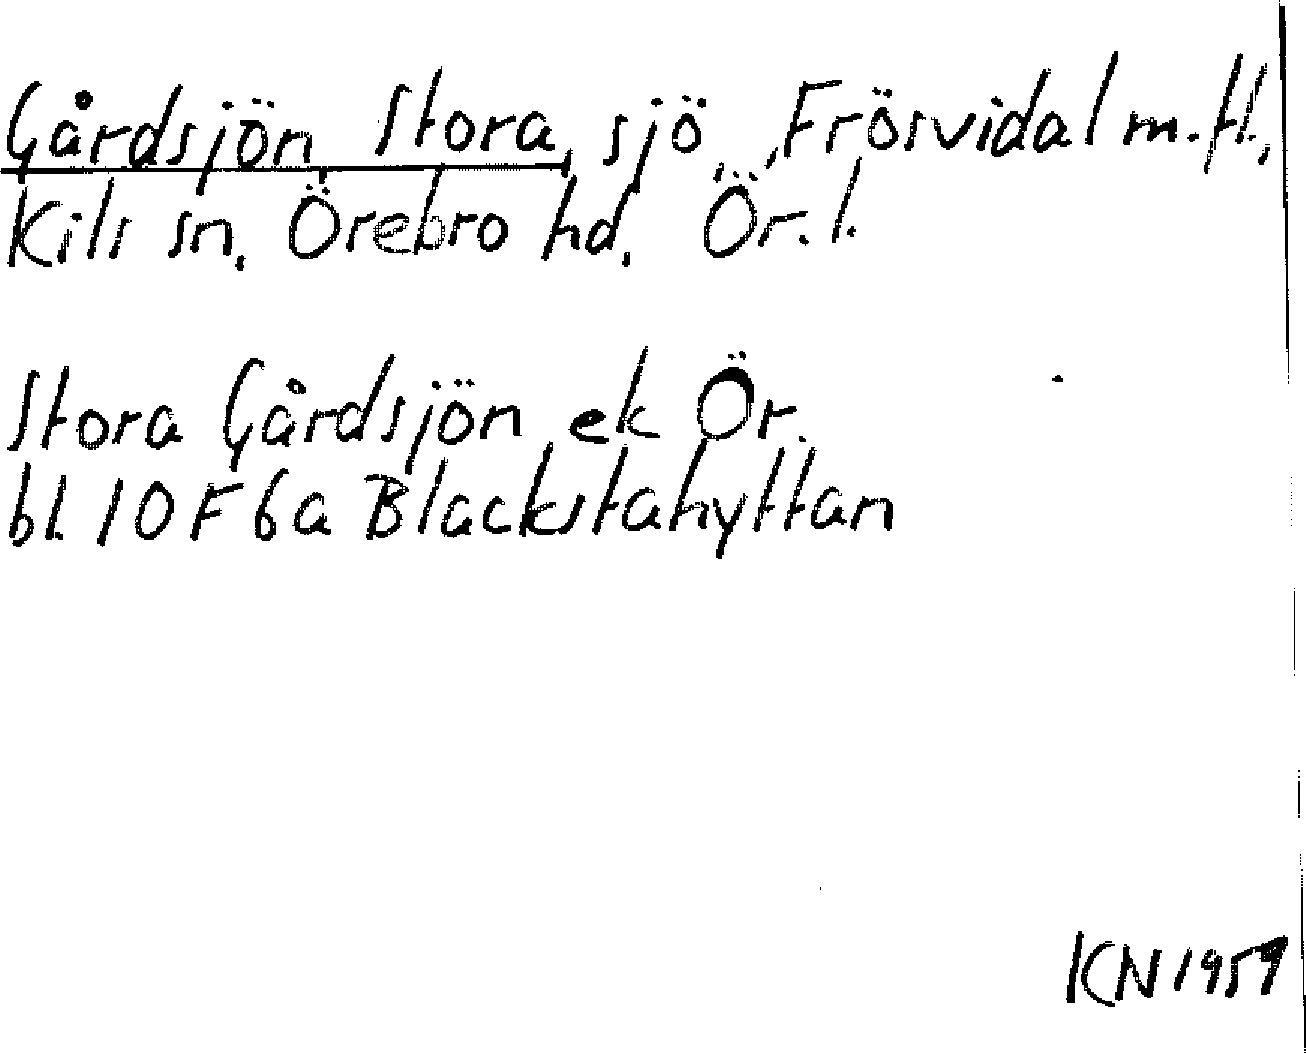 Gårdsjön, Stora, sjö, Frösvidal m.fl.,
Kils sn, Örebro hd, Ör. l.
Stora Gårdsjön ek Ör.
bl. 10 F 6a Blackstahyttan
KN 1959